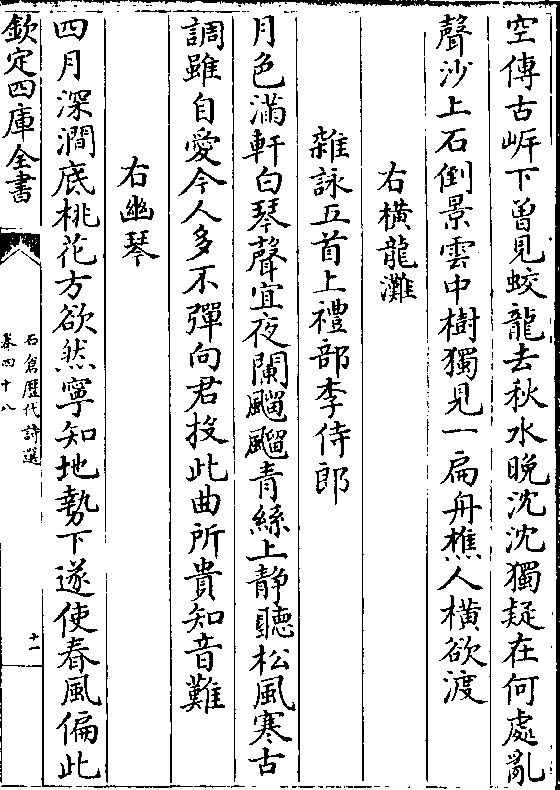 空傳古岸下曽見蛟龍去秋水晚沈沈獨疑在何處亂
聲沙上石倒景雲中樹獨見一扁舟樵人橫欲渡
右橫龍灘
雜詠五首上禮部李侍郎
月色滿軒白琴聲宜夜闌飀飀青絲上静聽松風寒古
調雖自愛今人多不彈向君投此曲所貴知音難
右幽琴
四月深澗底桃花方欲然寧知地勢下遂使春風偏此
欽定四庫全書
石倉歷代詩選
卷四十八
十一